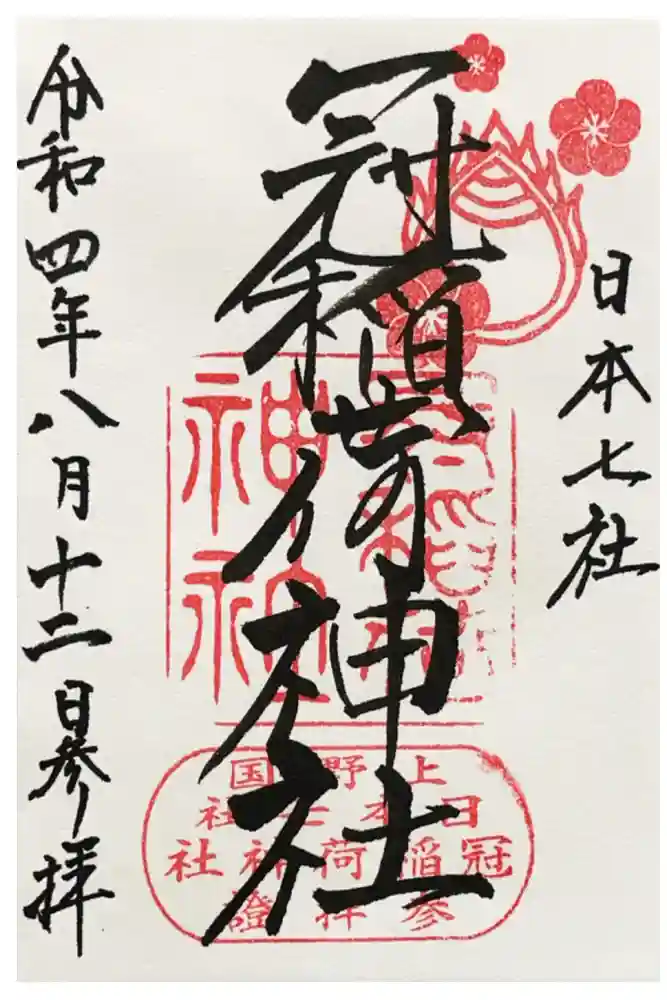 日本七社
冠稲荷神社
令和四年八月十二日参拝
冠稲荷神社
上野国
日本七社
冠稲荷神社
参拝證